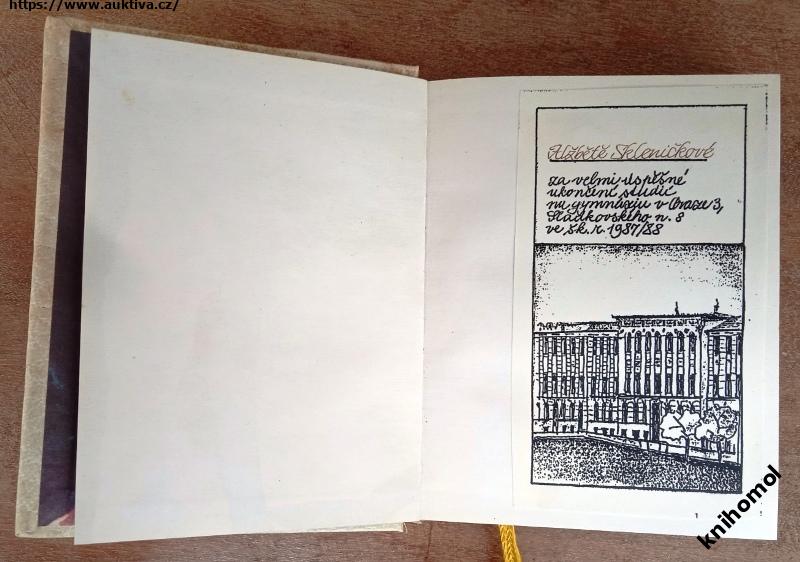 https://www.auktiva.cz/
Alžbětě Skleničkové
za velmi úspěšné
ukončení studií
na gymnáziu v Praze 3,
Sladkovského n. 8
ve šk. r. 1987/88
knihomol